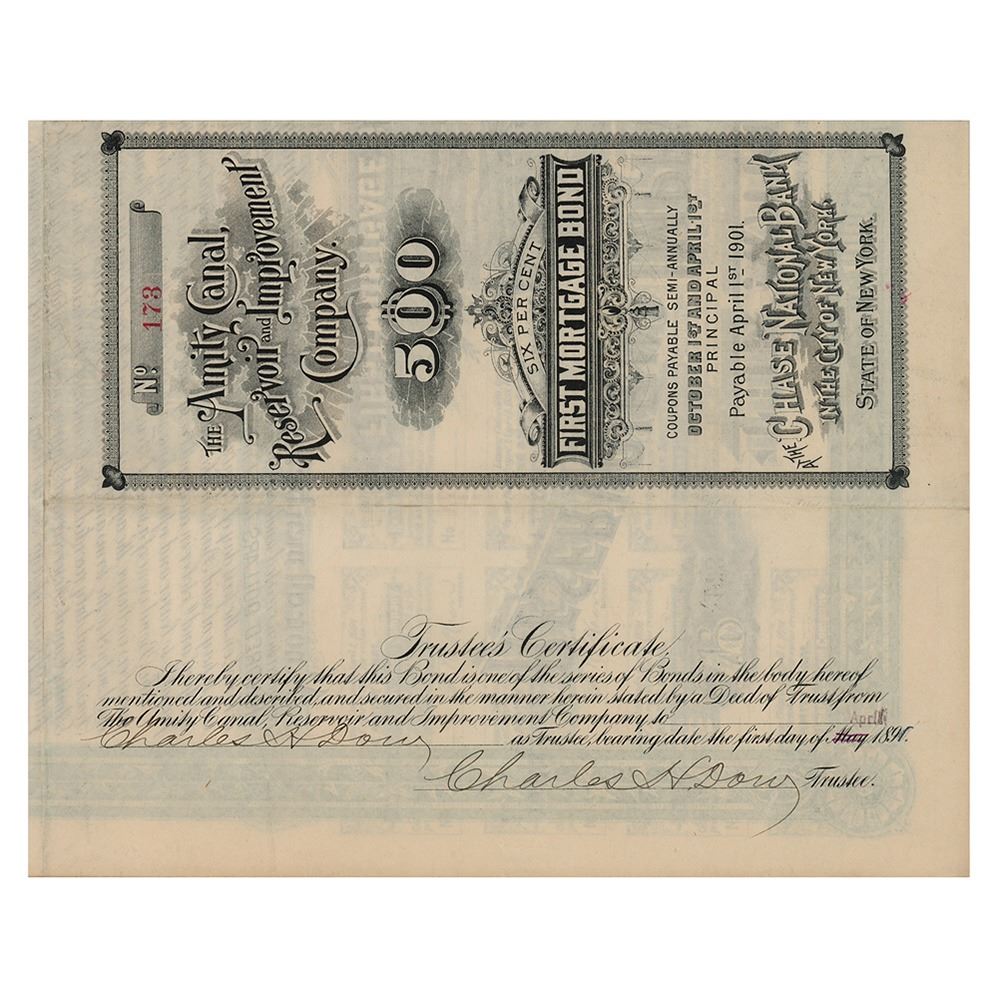 Nº 173
THE Amity Canal,
Reservoir and Improvement
Company.
$500
SIX PER CENT
FIRST MORTGAGE BOND
COUPONS PAYABLE SEMI-ANNUALLY
OCTOBER 1ST AND APRIL 1ST
PRINCIPAL
Payable April 1ST 1901.
AT THE CHASE NATIONAL BANK
IN THE CITY OF NEW YORK.
STATE OF NEW YORK.
Trustee's Certificate.
I hereby certify that this Bond is one of the series of Bonds in the body hereof
mentioned and described, and secured in the manner herein stated by a Deed of Trust, from
The Amity Canal, Reservoir and Improvement Company to
April
Charles H Dow as Trustee, bearing date the first day of May 1891.
Charles H Dow Trustee.